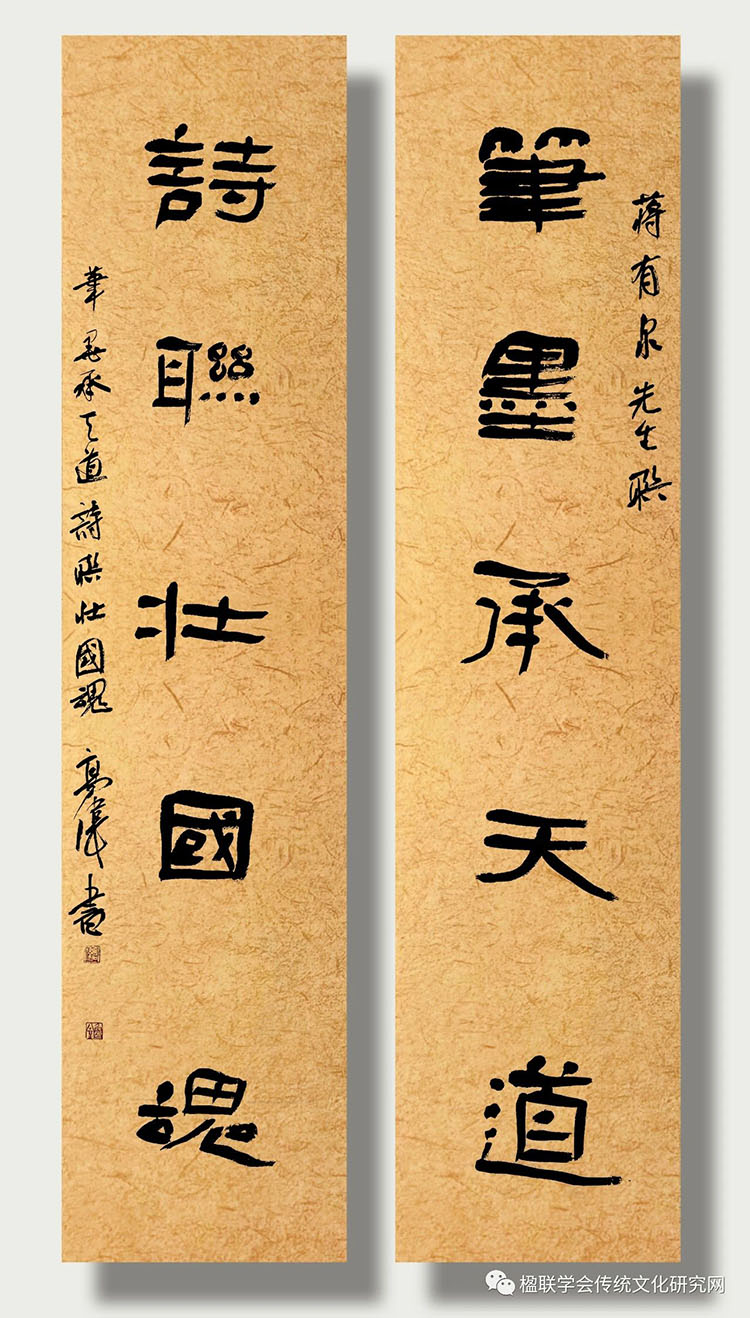 蒋有泉先生聯
筆墨承天道
詩聯壯國魂
筆墨承天道詩聯壯國魂 高偉書
楹联学会传统文化研究网